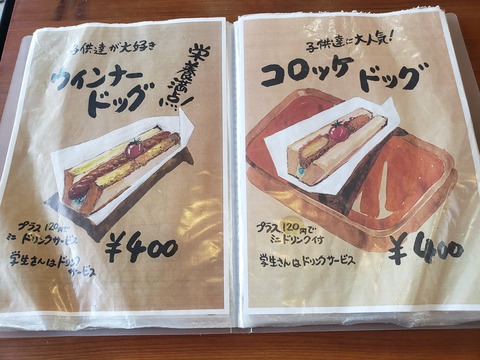 子供達が大好き
ウインナー
ドッグ
栄養満点!
プラス120円で
ミニドリンクサービス
学生さんはドリンク
サービス
¥400
子供達に大人気!
コロッケ
ドッグ
プラス120円で
ミニドリンク付
学生さんはドリンクサービス
¥400